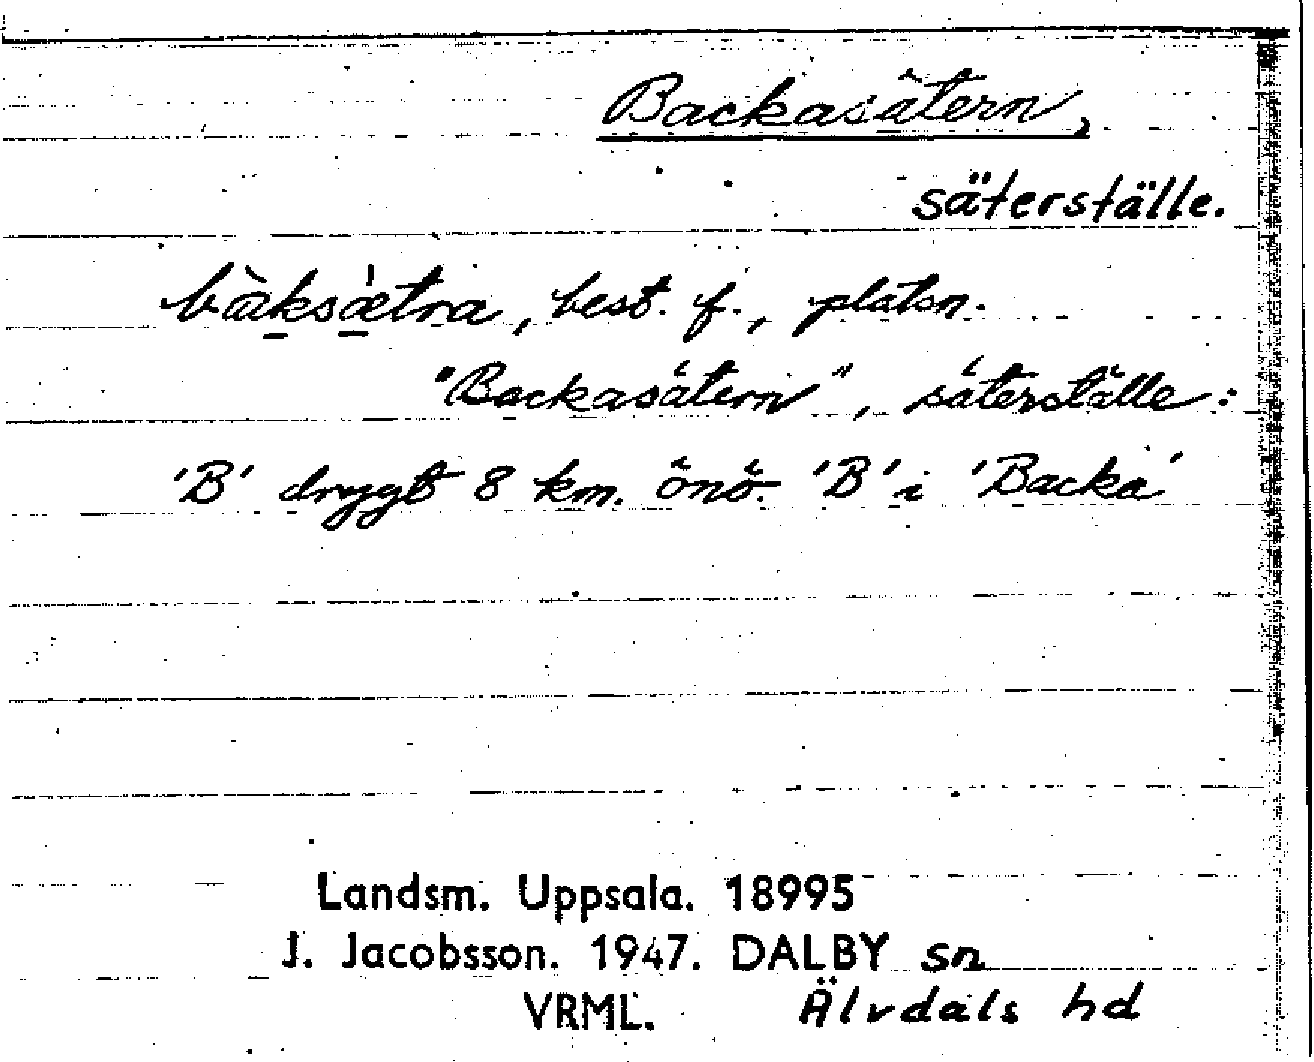 Backasätern,
säterställe.
bàksǽtra, best. f., platsn.
"Backasätern", säterställe:
'B' drygt 8 km. önö. 'B' i 'Backa'
Landsm. Uppsala. 18995
J. Jacobsson. 1947. DALBY sn
VRML. Älvdals hd